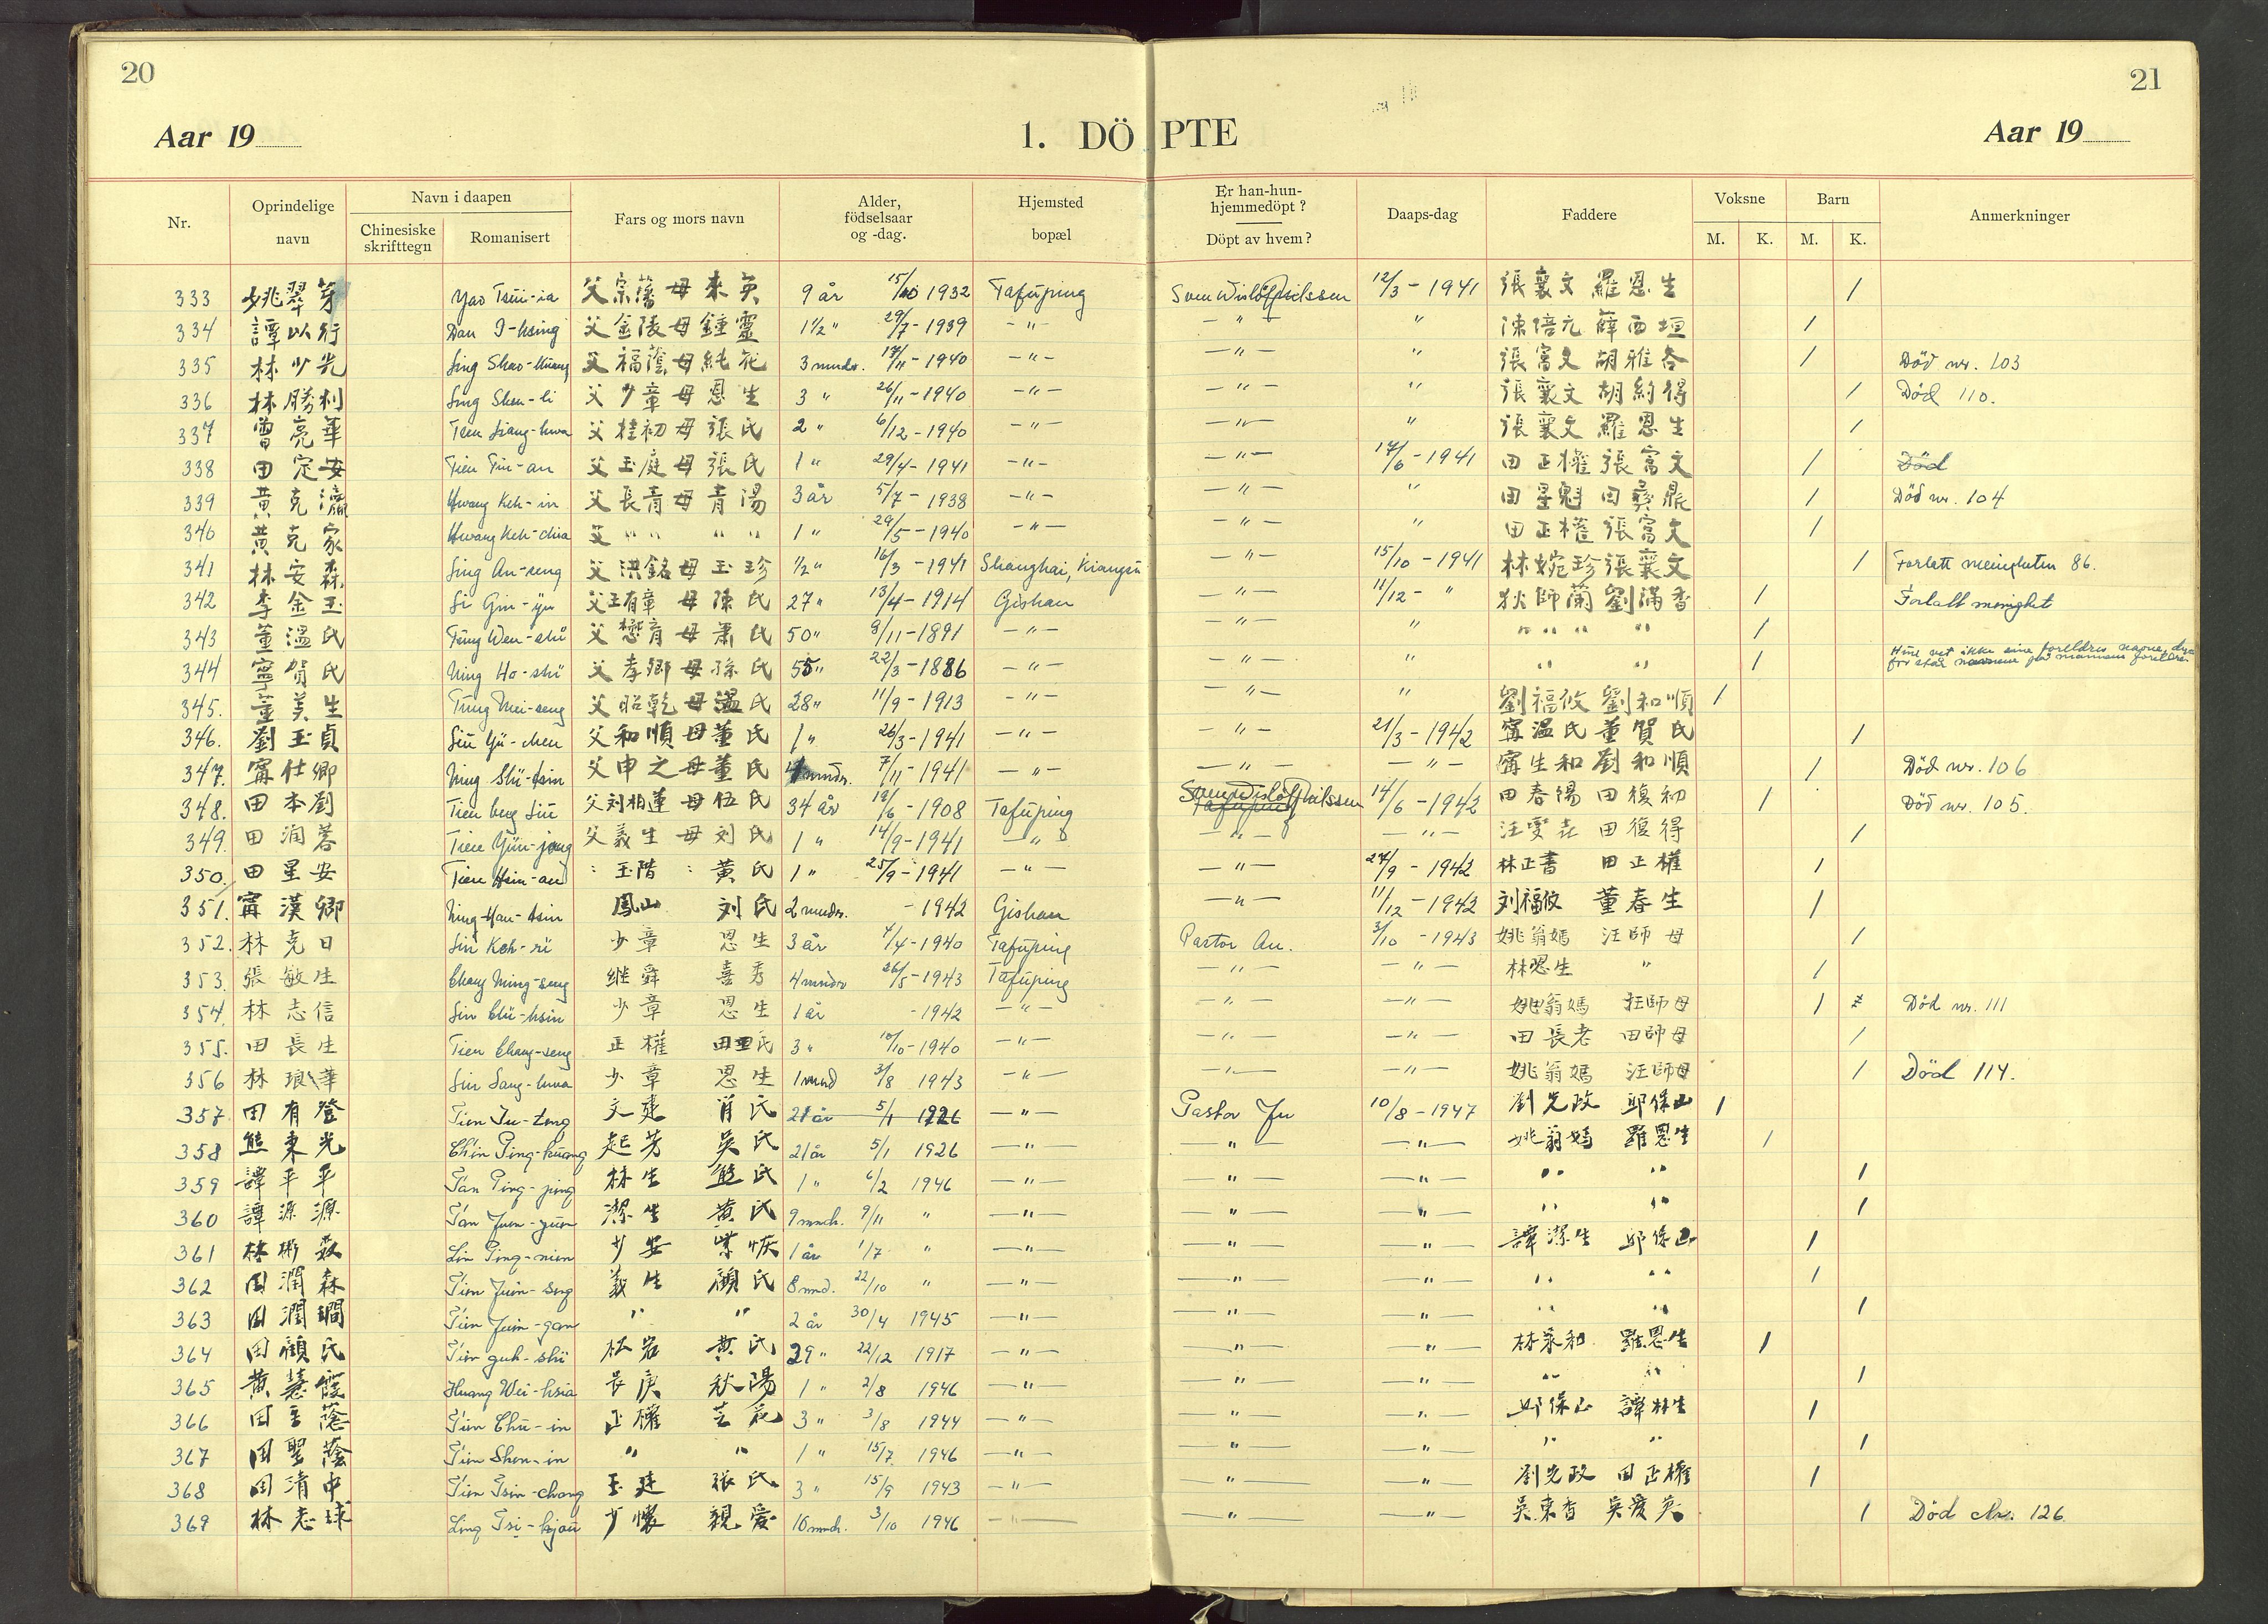 20
21
Aar 19
1. DÖPTE
Aar 19
Nr.
Oprindelige navn
Navn i daapen
Chinesiske skrifttegn
Romanisert
Fars og mors navn
Alder, födselsaar og -dag.
Hjemsted bopæl
Er han-hun-hjemmedöpt ?
Döpt av hvem ?
Daaps-dag
Faddere
Voksne
M. K.
Barn
M. K.
Anmerkninger
333 姚翠芽 Yao Tsüi-ia 父宗藩母來英 9 år 1932 Tafuping 12/3 - 1941 張襄文 羅恩生 /
334 譚以行 Dan I-hsing 父金陵母鍾靈 1 1/2 " 29/7 - 1939 - " - - " - " 陳信元 薛西垣 /
335 林少光 Ling Shao-kuang 父福蔭母純花 3 mndr. 17/11 - 1940 - " - - " - " 張富文 胡雅各 / Död nr. 103
336 林勝利 Ling Shen-li 父少章母恩生 3 " 26/11 - 1940 - " - - " - " 張襄文 胡約得 / Död 110.
337 曾亮華 Tsen Liang-hwa 父桂初母張氏 2 " 6/12 - 1940 - " - - " - " 張襄文 羅恩生 /
338 田定安 Tien Tin-an 父玉庭母張氏 1 " 29/4 - 1941 - " - - " - 17/6 - 1941 田正權 張富文 / Död
339 黃克瀛 Hwang Keh-in 父長青母青陽 3 år 5/7 - 1938 - " - - " - " 田星魁 田彝鼎 / Död nr. 104
340 黃克家 Hwang Keh-chia 父 " " " " 1 " 29/5 - 1940 - " - - " - " 田正權 張富文 /
341 林安森 Ling An-seng 父洪銘母玉珍 1/2 " 16/3 - 1941 Shanghai, Kiangsu - " - 15/10 - 1941 林婉珍 張襄文 / Forlatt menigheten 86.
342 李金玉 Li Gin-yü 父王有章 母陳氏 27 " 13/4 - 1914 Gishan - " - 11/12 - " 狄師蘭 劉滿香 / Forlatt menighet
343 董溫氏 Tung Wen-shï 父懋育母蕭氏 50 " 9/11 - 1891 - " - - " - " " " " " /
344 寧賀氏 Ning Ho-shï 父孝卿母孫氏 55 " 22/3 - 1886 - " - - " - " " " /
345. 董美生 Tung Mei-seng 父昭乾母溫氏 28 " 11/9 - 1913 - " - - " - " 劉福攸 劉和順 /
346. 劉玉貞 Liu Yü-chen 父和順母董氏 1 " 26/3 - 1941 - " - - " - 21/3 - 1942 寗溫氏 董賀氏 /
347. 寗仕卿 Ning Shï-tsin 父申之母董氏 mndr. 7/11 - 1941 - " - - " - - " - 寗生和 劉和順 / Död nr. 106
348. 田本劉 Tien beng Liu 父刘柏蓮母伍氏 34 år 19/6 - 1908 Tafuping 14/6 - 1942 田春陽 田復初 / Död nr. 105.
349. 田潤蓉 Tien Yün-jong 父義生母刘氏 1 " 14/9 - 1941 - " - - " - - " - 田復得 /
350. 田星安 Tien Hsin-an : 玉階 : 黃氏 1 " 25/9 - 1941 - " - - " - 27/9 - 1942 林正書 田正權 /
351. 寗漢卿 Ning Han-tsin 鳳山 刘氏 2 mndr. - 1942 Gishan - " - 11/12 - 1942 刘福攸 董春生 /
352. 林克日 Lin Keh-ri 少章 恩生 3 år 4/4 - 1940 Tafuping Pastor An. 3/10 - 1943 姚翁媽 汪師母 /
353. 張敏生 Chang Ming-seng 継舜 喜秀 4 mndr 26/5 - 1943 Tafuping - " - - " - 林恩生 " /
354. 林志信 Lin Chï-hsin 少章 恩生 1 år - 1942 - " - - " - - " - 姚翁媽 汪師母 / Död nr. 111
355. 田長生 Tien Chang-seng 正權 氏 3 " 10/10 - 1940 - " - - " - - " - 田長老 田師母 /
356 林琅華 Lin Lang-hwa 少章 恩生 1 mnd 3/8 1943 - " - - " - - " - 姚翁媽 汪師母 / Död 114.
357 田有登 Tien Ju-teng 文建 肖氏 21 år 5/1 1926 - " - Pastor Ju 10/8 - 1947 劉光政 邱保山 /
358 熊東光 起芳 吳氏 21 år 5/1 1926 - " - - " - - " - 姚翁媽 羅恩生 /
359 譚平平 Tan Ping-ping 林生 熊氏 1 " 6/2 1946 - " - - " - - " - " " /
360 譚源源 Tan Juen-yuen 潔生 黃氏 9 mnd. 9/11 " - " - - " - - " - " " /
361 林彬 Lin Ping-nien 少安 1 år 1/7 " - " - - " - - " - 譚潔生 邱保山 /
362 田潤森 Tien Juin-seng 義生 顏氏 8 mnd. 22/10 " - " - - " - - " - " " /
363 田潤 Tien Juin-gan " " 2 år 30/4 1945 - " - - " - - " - " " /
364 田顏氏 黃氏 29 " 22/12 1917 - " - - " - - " - 羅恩生 /
365 黃慧霞 Huang Wei-hsia 長庚 秋陽 1 " 2/8 1946 - " - - " - - " - " " /
366 田主蔭 Tien Chü-in 正權 芝花 3 " 3/8 1944 - " - - " - - " - 邱保山 譚林生 /
367 田聖蔭 Tien Shen-in " " 1 " 15/7 1946 - " - - " - - " - " " /
368 田清中 Tien Tsin-chong 玉建 張氏 3 " 15/9 1943 - " - - " - - " - 劉光政 田正權 /
369 林志球 少懷 親愛 10 mnd. 3/10 1946 - " - - " - - " - 吳東香 吳愛英 / Död Nr. 126